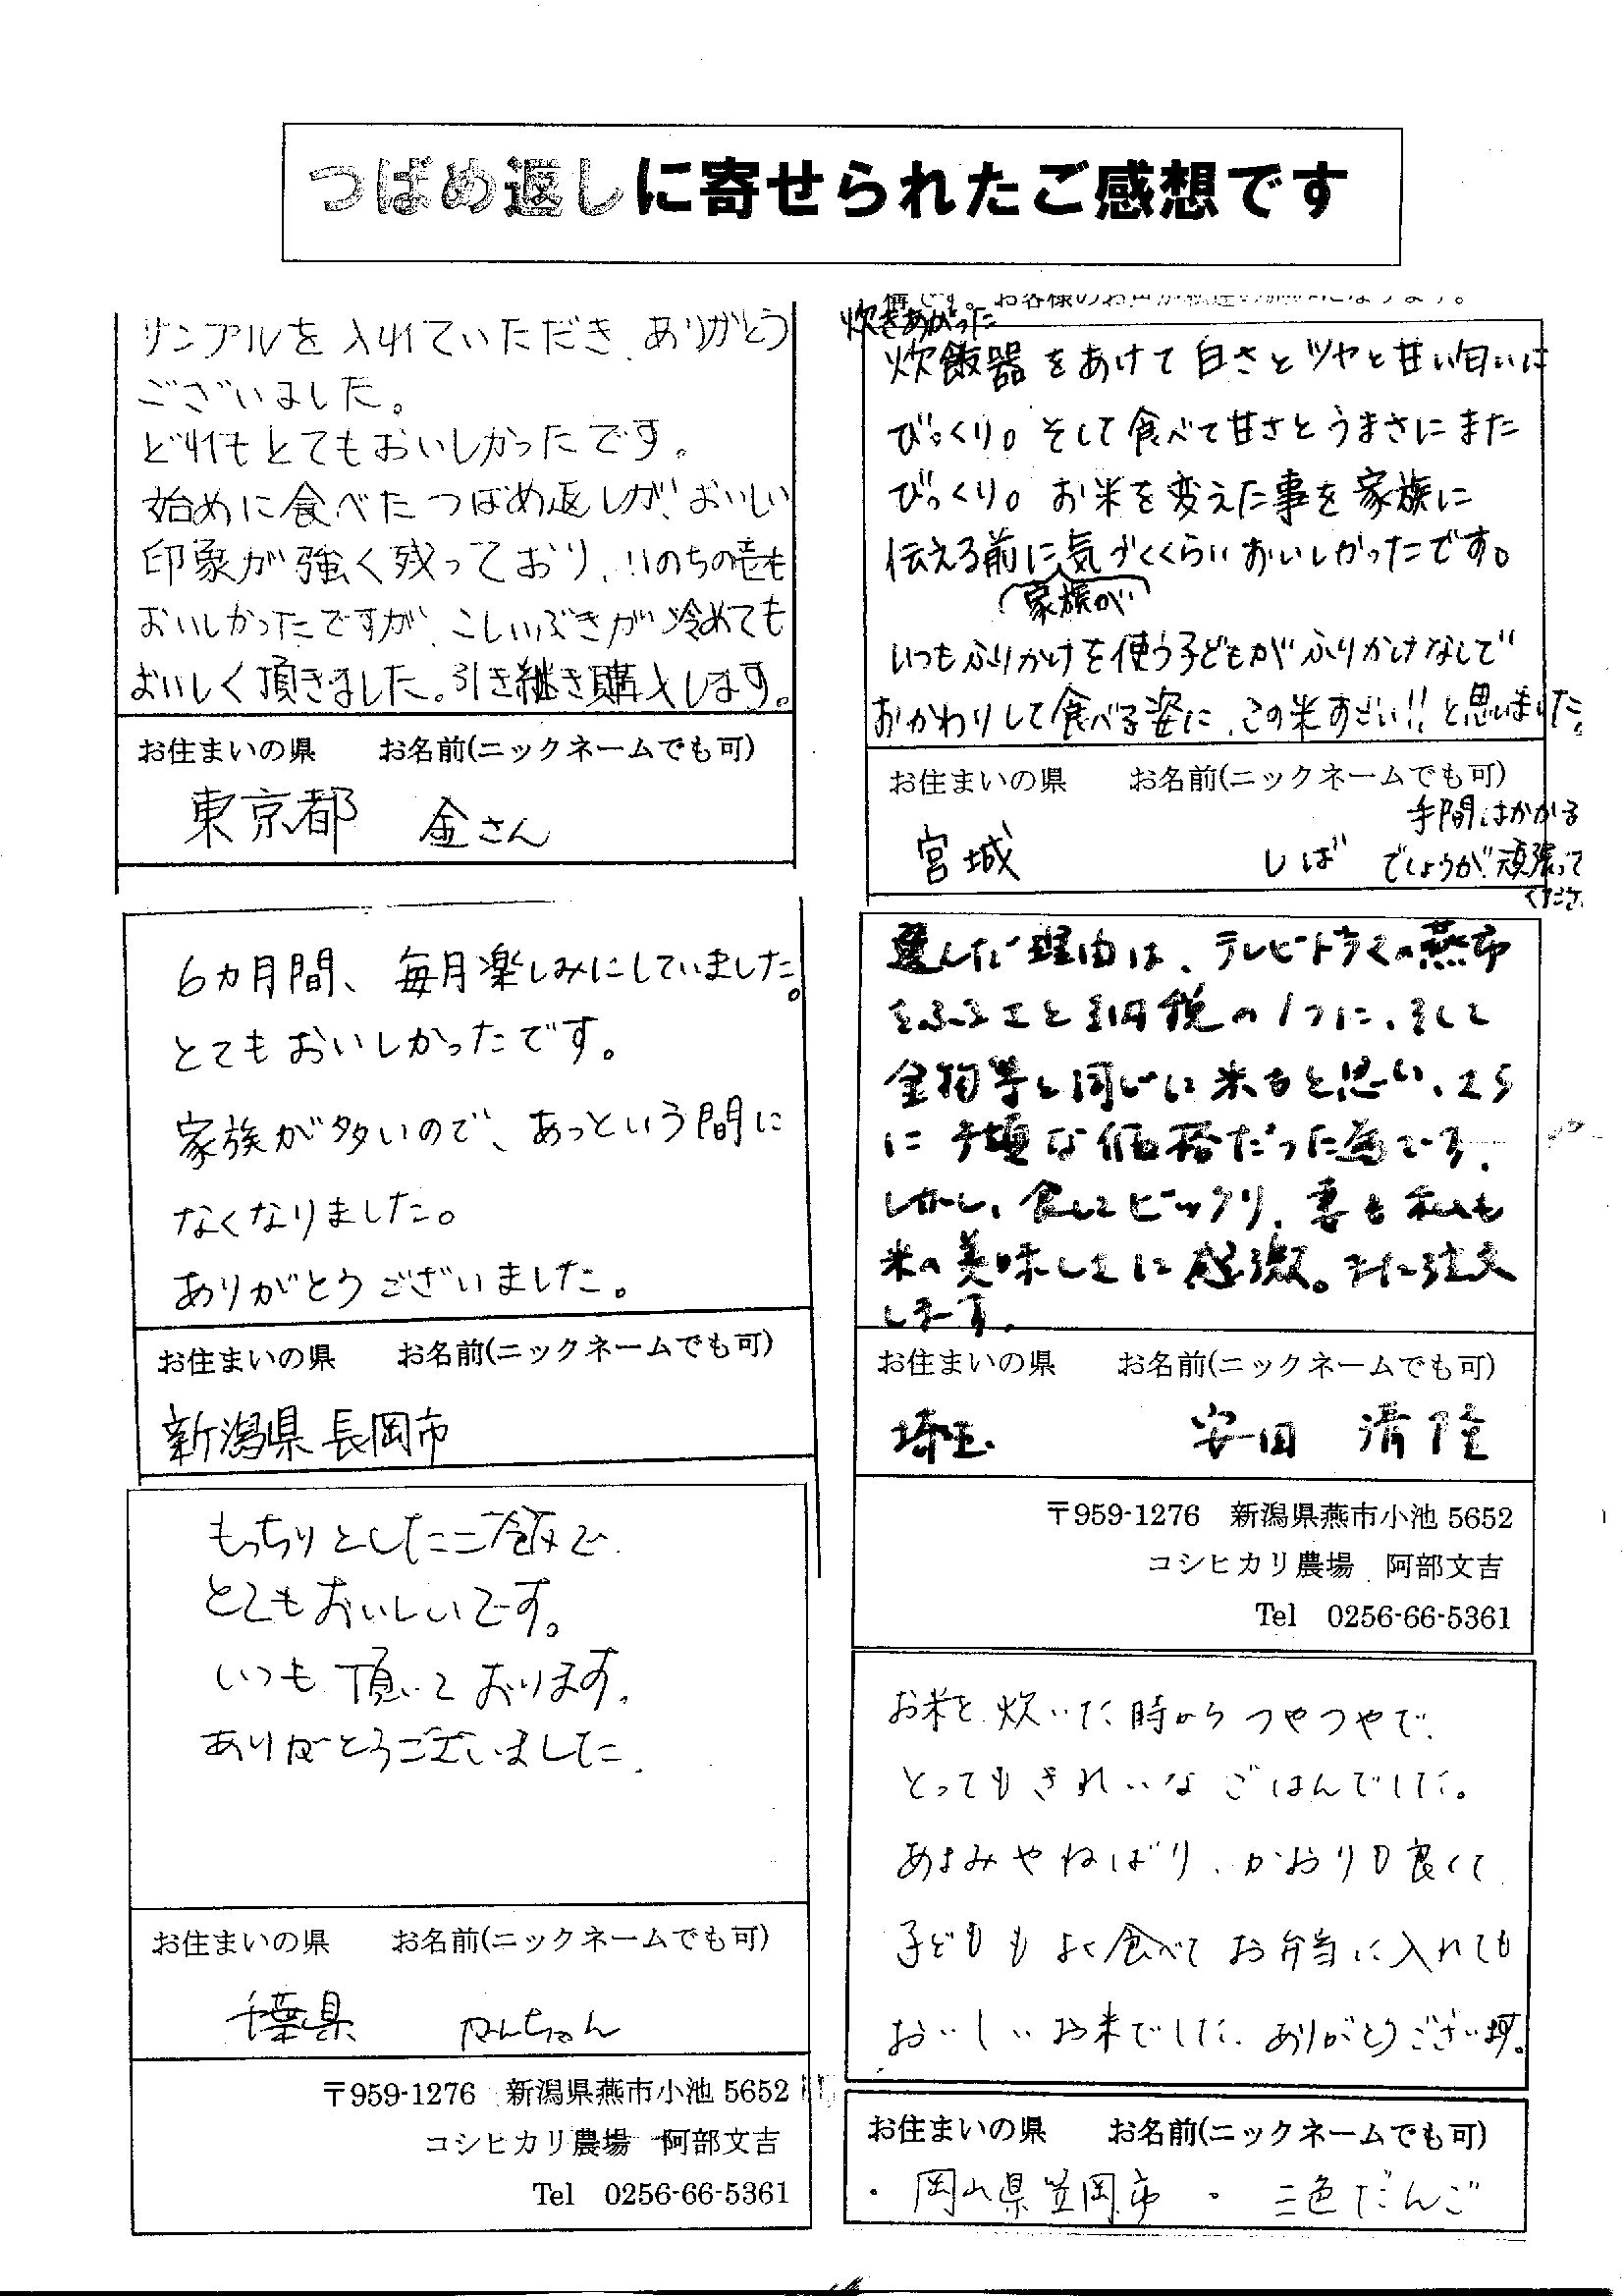 つばめ返しに寄せられたご感想です
サンプルを入れていただき、ありがとう
ございました。
どれもとてもおいしかったです。
始めに食べたつばめ返しが、おいしい
印象が強く残っており、いのちの壱も
おいしかったですが、こしいぶきが冷めても
おいしく頂きました。引き継き購入します。
お住まいの県 お名前(ニックネームでも可)
東京都 金さん
6カ月間、毎月楽しみにしていました。
とてもおいしかったです。
家族が多いので、あっという間に
なくなりました。
ありがとうございました。
お住まいの県 お名前(ニックネームでも可)
新潟県長岡市
もっちりとしたご飯で
とてもおいしいです。
いつも頂いております。
ありがとうございました.
お住まいの県 お名前(ニックネームでも可)
千葉県 ちゃん
〒959-1276 新潟県燕市小池 5652
コシヒカリ農場 阿部文吉
Tel 0256-66-5361
です。お客様のお声が私達の になります。
炊きあがった
炊飯器をあけて白さとツヤと甘い匂いに
びっくり。そして食べて甘さとうまさにまた
びっくり。お米を変えた事を家族に
伝える前に気づくくらいおいしかったです。
家族が
いつもふりかけを使う子どもがふりかけなしで
おかわりして食べる姿に、この米すごい!!と思いました。
お住まいの県 お名前(ニックネームでも可)
手間はかかる
宮城 しば でしょうが、頑張って
くださ
選んだ理由は、テレビドラマの燕市
をふるさと納税の1つに、そして
金物等と同じに米もと思い、さら
に手頃な価格だった為です。
しかし、食してビックリ、妻も私も
米の美味しさに感激。また注文
します。
お住まいの県 お名前(ニックネームでも可)
埼玉 安田 清隆
〒959-1276 新潟県燕市小池 5652
コシヒカリ農場 阿部文吉
Tel 0256-66-5361
お米を炊いた時からつやつやで、
とってもきれいなごはんでした。
あまみやねばり、かおりも良くて
子どももよく食べてお弁当に入れても
おいしいお米でした。ありがとうございます。
お住まいの県 お名前(ニックネームでも可)
・岡山県笠岡市 ・ 三色だんご